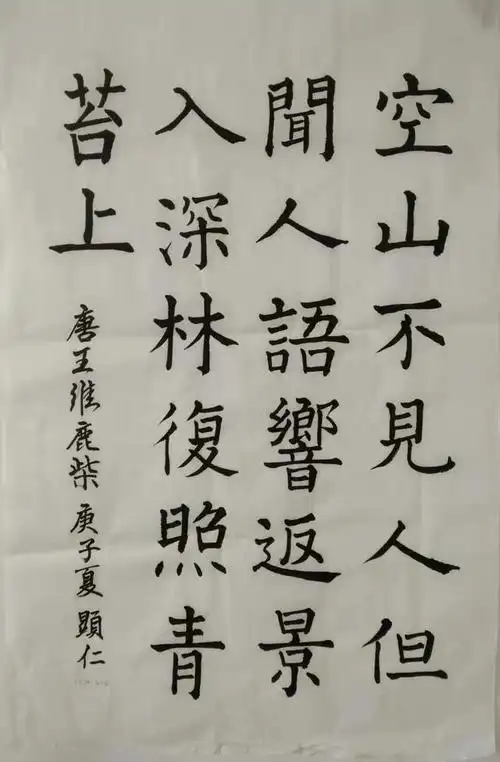 空山不見人但
聞人語響返景
入深林復照青
苔上
唐王維鹿柴庚子夏顕仁